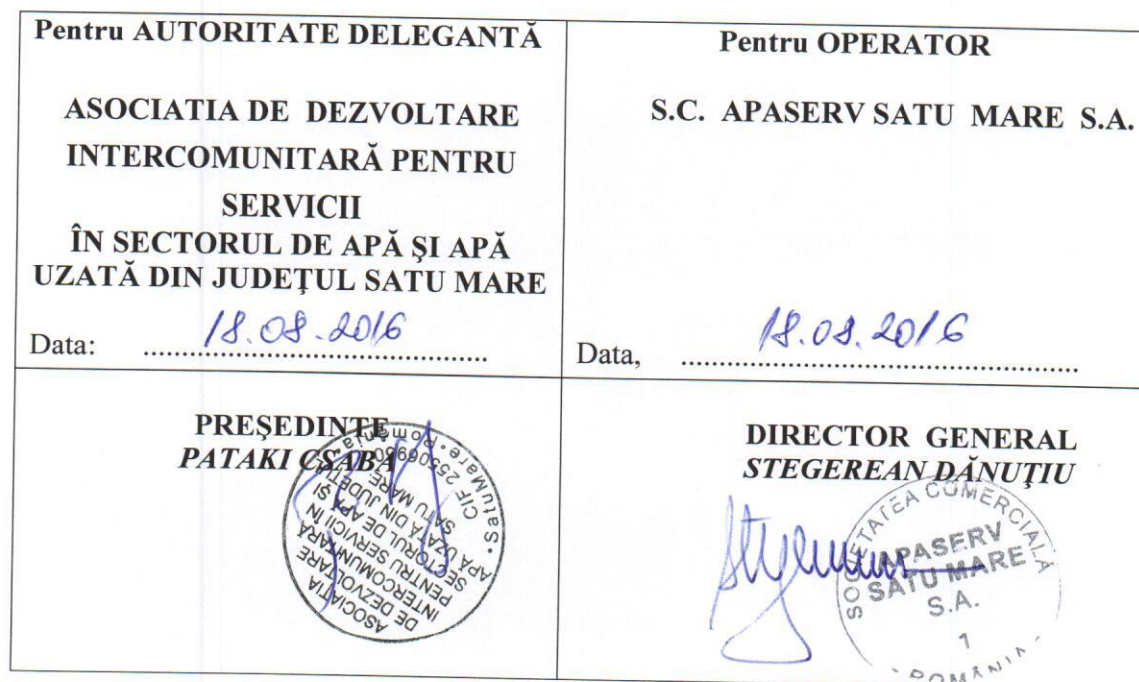 Pentru AUTORITATE DELEGANTĂ
ASOCIATIA DE DEZVOLTARE
INTERCOMUNITARĂ PENTRU
SERVICII
ÎN SECTORUL DE APĂ ŞI APĂ
UZATĂ DIN JUDEŢUL SATU MARE
Data: 18.08.2016
Pentru OPERATOR
S.C. APASERV SATU MARE S.A.
Data, 18.08.2016
PREŞEDINTE
PATAKI CSABA
ASOCIATIA
DE DEZVOLTARE
INTERCOMUNITARĂ
PENTRU SERVICII ÎN
SECTORUL DE APĂ ŞI
APĂ UZATĂ DIN JUDEŢUL
SATU MARE
CIF
SatuMare România
DIRECTOR GENERAL
STEGEREAN DĂNUŢIU
SOCIETATEA COMERCIALĂ
APASERV
SATU MARE
S.A.
1
- ROMÂNIA -